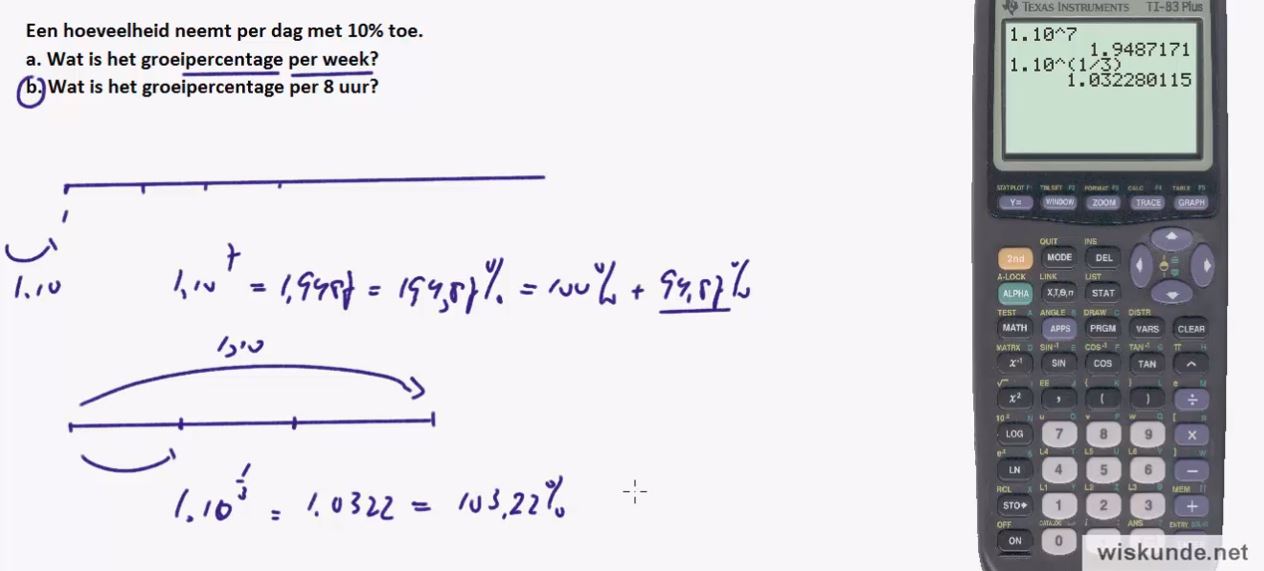 Een hoeveelheid neemt per dag met 10% toe.
a. Wat is het groeipercentage per week?
b. Wat is het groeipercentage per 8 uur?
1.10
1,10^7 = 1,9487 = 194,87% = 100% + 94,87%
1,10
1.10^1/3 = 1.0322 = 103,22%
TEXAS INSTRUMENTS TI-83 Plus
1.10^7
1.9487171
1.10^(1/3)
1.032280115
STAT PLOT F1 TBLSET F2 FORMAT F3 CALC F4 TABLE F5
Y= WINDOW ZOOM TRACE GRAPH
QUIT INS
2nd MODE DEL
A-LOCK LINK LIST
ALPHA X,T,θ,n STAT
TEST A ANGLE B DRAW C DISTR
MATH APPS PRGM VARS CLEAR
MATRX D SIN⁻¹ E COS⁻¹ F TAN⁻¹ G π H
x⁻¹ SIN COS TAN ^
√ I EE J { K } L e M
x² , ( ) ÷
10ˣ N u O v P w Q [ R
LOG 7 8 9 X
eˣ S L4 T L5 U L6 V ] W
LN 4 5 6 −
RCL X L1 Y L2 Z L3 θ MEM "
STO➔ 1 2 3 +
OFF CATALOG ANS ? ENTRY SOLVE
ON 0
wiskunde.net